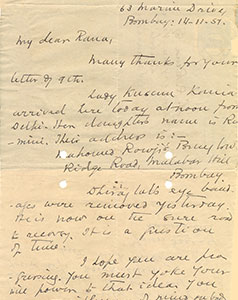 63 Marine Drive,
Bombay: 14-11-57.
My dear Rana,
Many thanks for your
letter of 9th.
Lady Kusum
arrived here today at noon from
Delhi. Her daughter's name is Ro-
-mini. Their address is:-
Mahomed Bungalow
Ridge Road, Malabar Hill
Bombay.
Dhirajlal's eye band-
-ages were removed yesterday.
He is now on the sure road
to recovery. It is a question
of time.
I hope you are pro-
-gressing. You must yoke your
will power to that idea. You